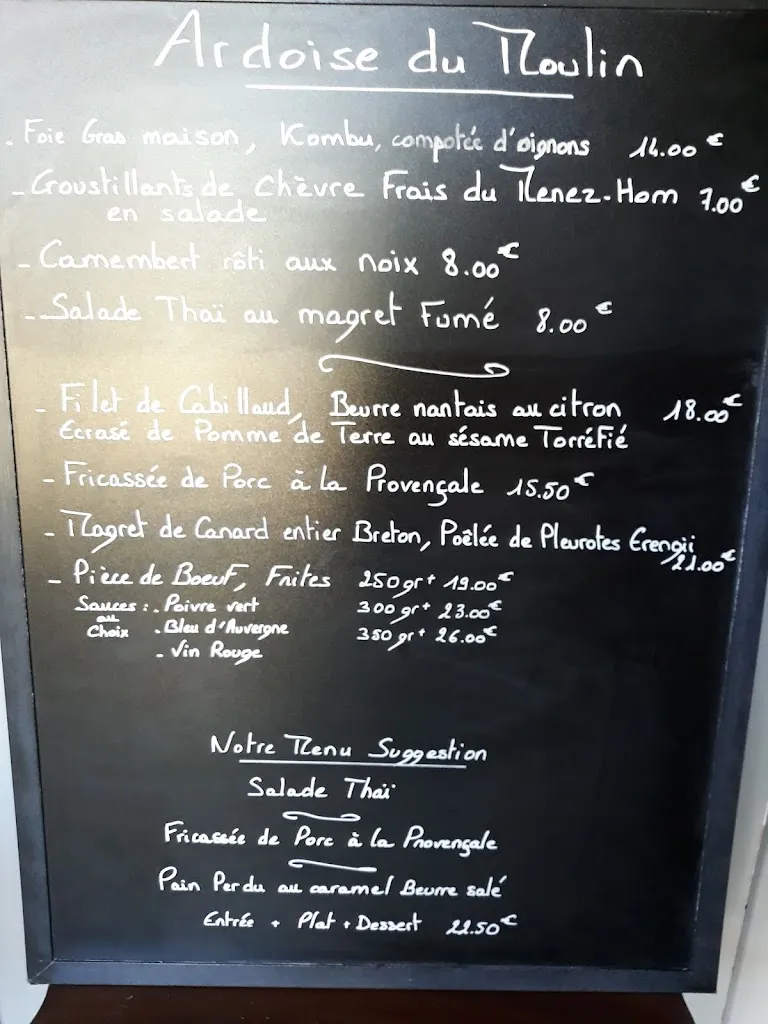 Ardoise du Moulin
- Foie Gras maison, Kombu, compotée d'oignons 14.00€
- Croustillants de Chèvre Frais du Menez-Hom 7.00€
en salade
- Camembert rôti aux noix 8.00€
- Salade Thaï au magret Fumé 8.00€
- Filet de Cabillaud, Beurre nantais au citron 18.00€
Ecrasé de Pomme de Terre au sésame Torréfié
- Fricassée de Porc à la Provençale 15.50€
- Magret de Canard entier Breton, Poêlée de Pleurotes Erengii
21.00€
- Pièce de Boeuf, Frites 250gr+ 19.00€
Sauces : . Poivre vert 300gr+ 23.00€
au
Choix . Bleu d'Auvergne 350gr+ 26.00€
- Vin Rouge
Notre Menu Suggestion
Salade Thaï
Fricassée de Porc à la Provençale
Pain Perdu au caramel Beurre salé
Entrée + Plat + Dessert 22.50€